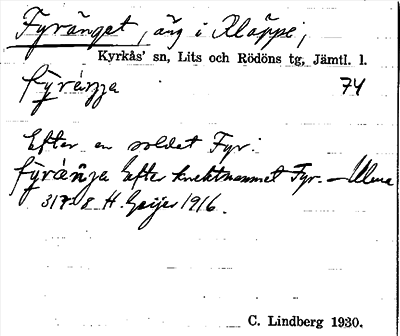 Fyränget, äng i Kläppe,
Kyrkås' sn, Lits och Rödöns tg, Jämtl. l.
fy̜ráŋ̄ŋa 74
Efter en soldat Fyr.
fy̜ráŋ̄ŋa Efter knektnamnet Fyr. —
317 8 H. Geijer 1916.
C. Lindberg 1930.